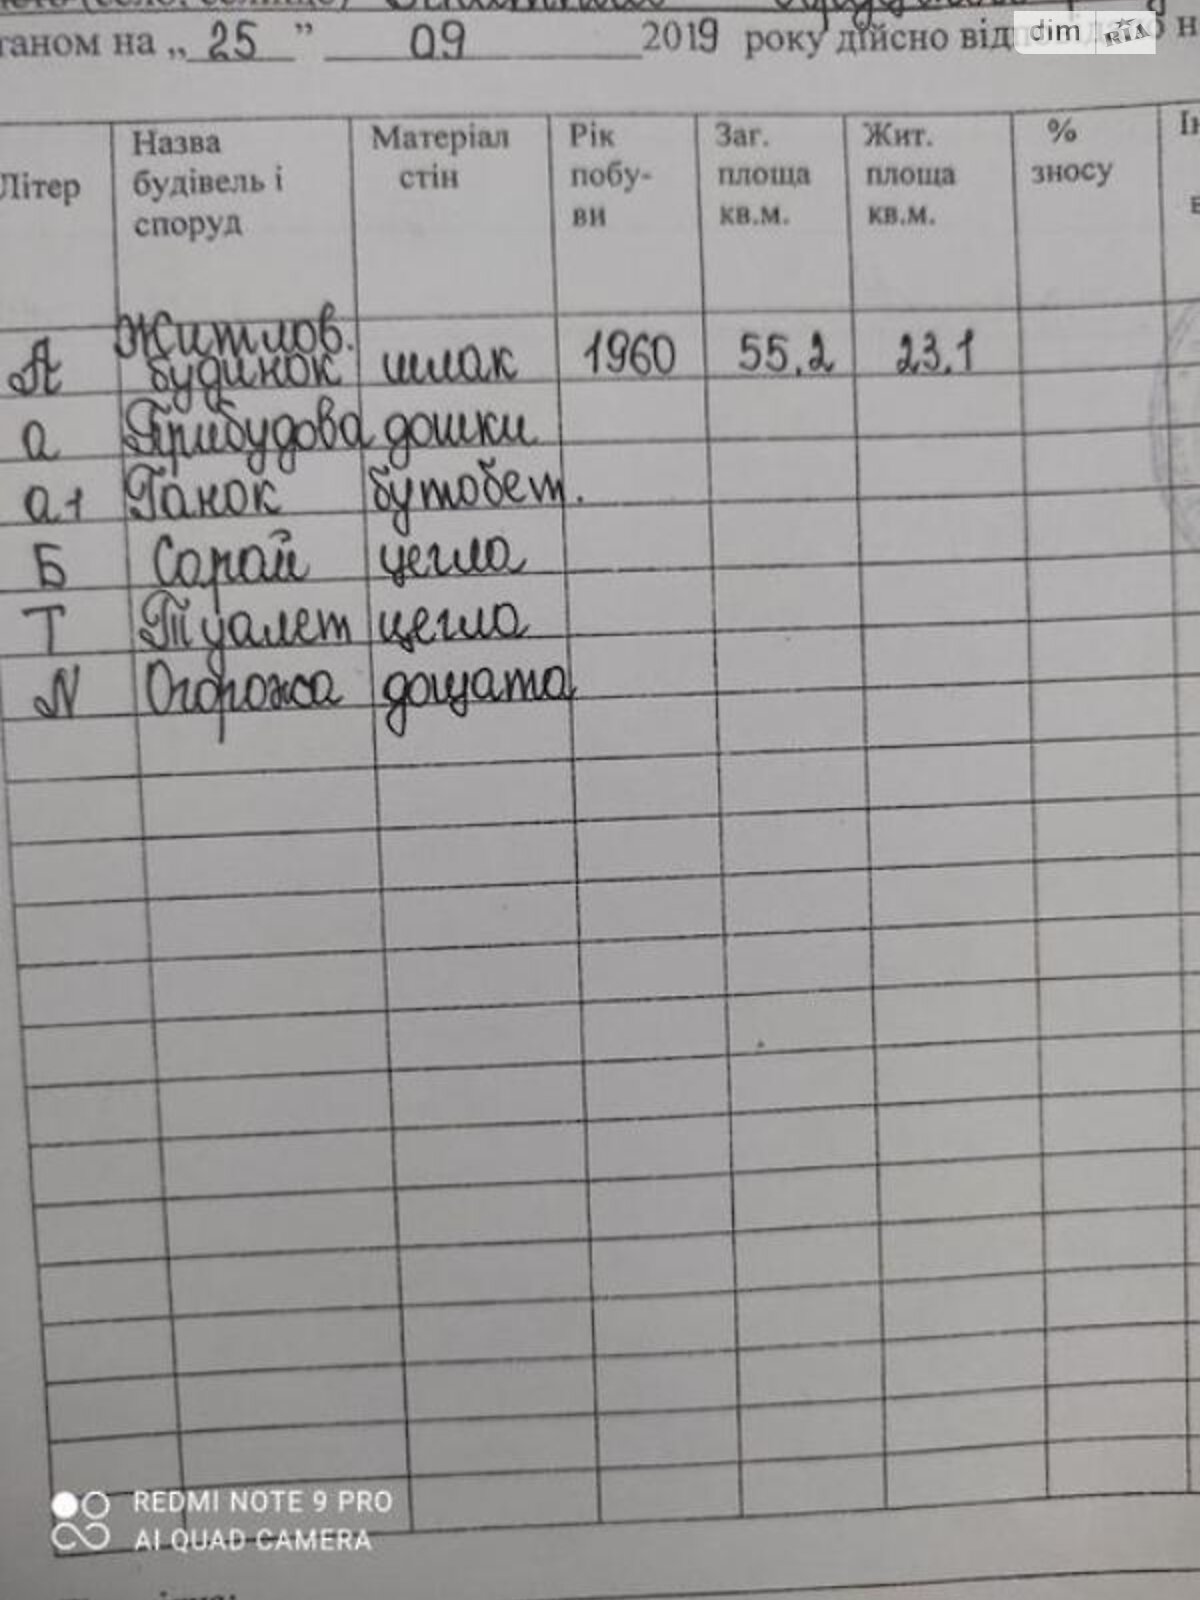 таном на „ 25 ” 09 2019 року дійсно
dim RIA
Літер Назва будівель і споруд Матеріал стін Рік побу- ви Заг. площа кв.м. Жит. площа кв.м. % зносу
А Житлов. будинок шлак 1960 55.2 23.1
а Прибудова дошки
а1 Ганок бутобет.
Б Сарай цегла
Т Туалет цегла
N Огорожа дощата
REDMI NOTE 9 PRO
AI QUAD CAMERA